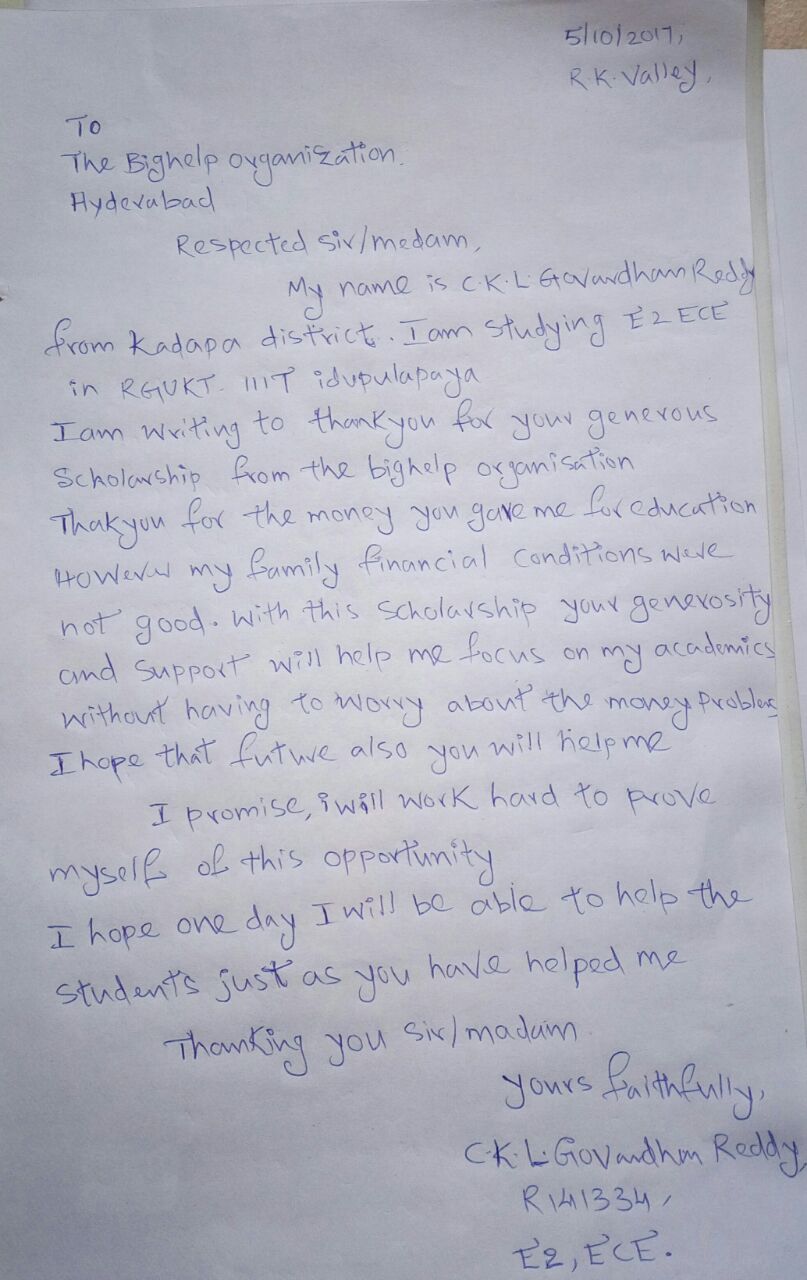 5/10/2017,
R.K. Valley,
To
The Bighelp organization.
Hyderabad
Respected sir/medam,
My name is C.K.L Govardhan Reddy
from Kadapa district. I am studying E2 ECE
in RGUKT. IIIT idupulapaya
I am writing to thankyou for your generous
Scholarship from the bighelp organisation
Thakyou for the money you gave me for education
However my family financial conditions were
not good. with this Scholarship your generosity
and support will help me focus on my academics
without having to worry about the money problems
I hope that future also you will help me
I promise, i will work hard to prove
myself of this opportunity
I hope one day I will be able to help the
students just as you have helped me
Thanking you sir/madam
yours faithfully,
C.K.L.Govardhan Reddy,
R141334,
E2, ECE.